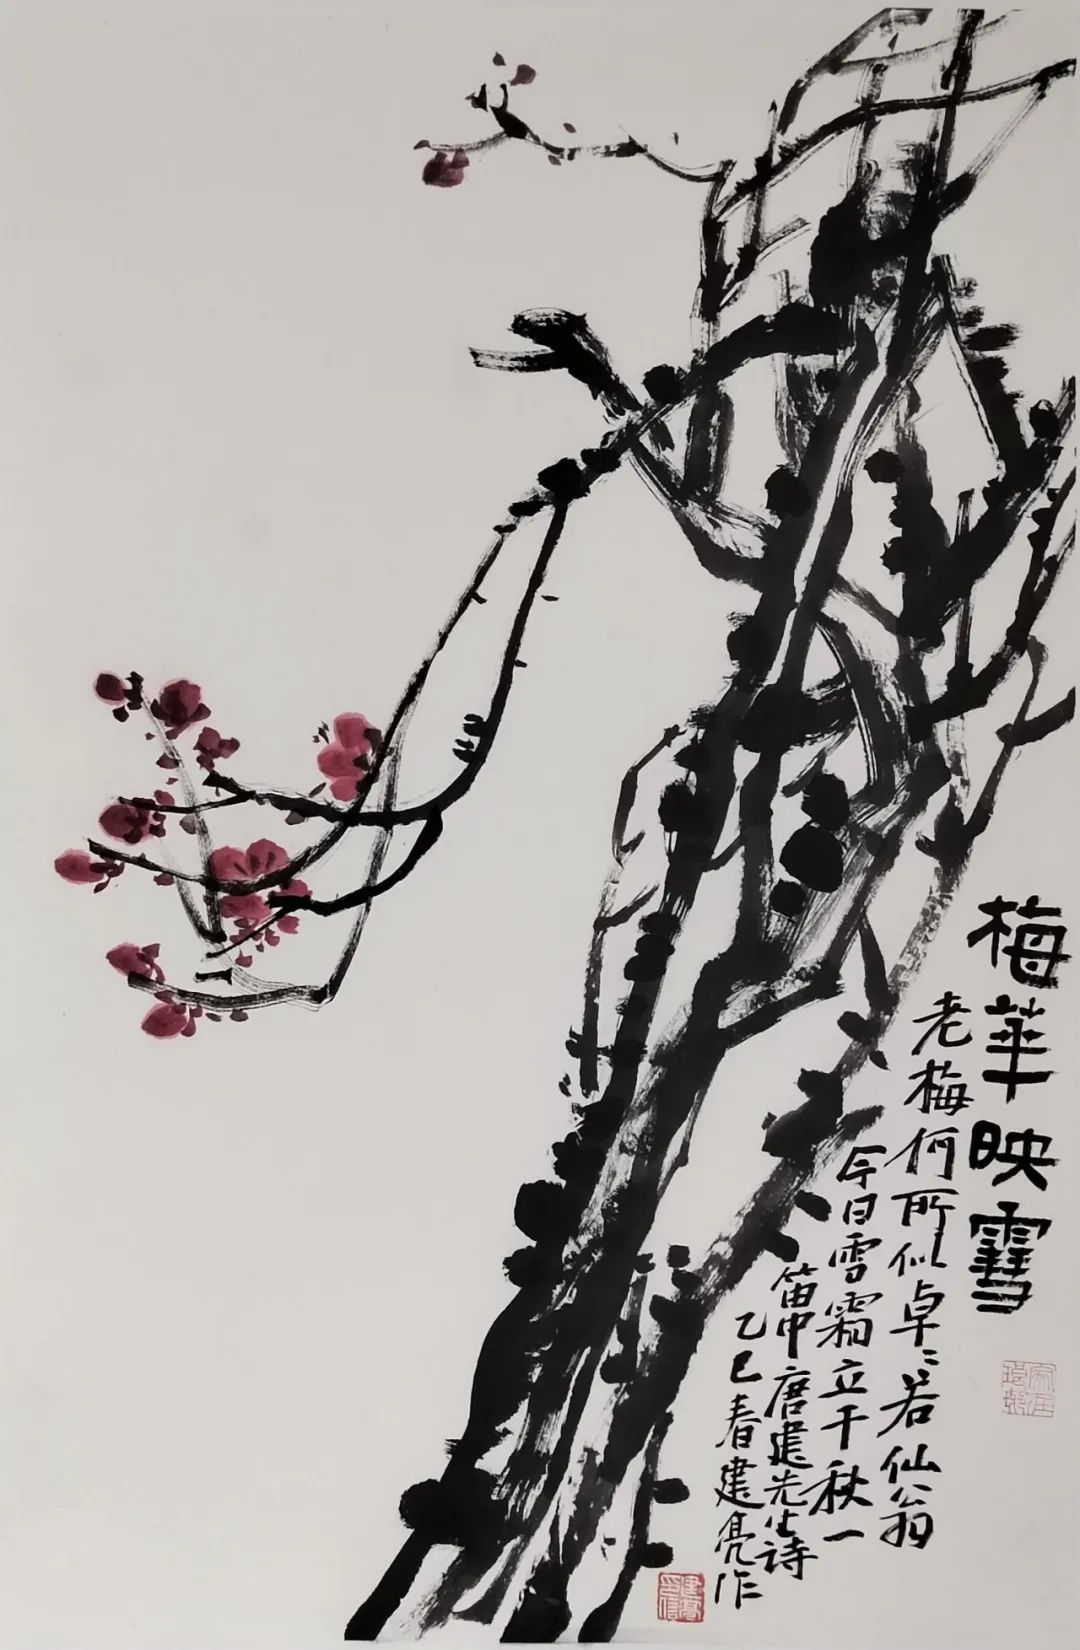 梅華映雪
老梅何所似卓〻若仙翁
今日雪霜立千秋一
笛中唐建先生诗
乙巳春建亮作